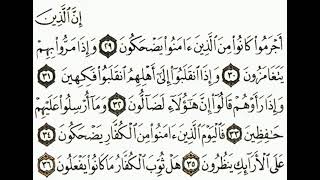 إِنَّ ٱلَّذِينَ
أَجْرَمُوا۟ كَانُوا۟ مِنَ ٱلَّذِينَ ءَامَنُوا۟ يَضْحَكُونَ ٢٩ وَإِذَا مَرُّوا۟ بِهِمْ
يَتَغَامَزُونَ ٣٠ وَإِذَا ٱنقَلَبُوٓا۟ إِلَىٰٓ أَهْلِهِمُ ٱنقَلَبُوا۟ فَكِهِينَ ٣١
وَإِذَا رَأَوْهُمْ قَالُوٓا۟ إِنَّ هَـٰٓؤُلَآءِ لَضَآلُّونَ ٣٢ وَمَآ أُرْسِلُوا۟ عَلَيْهِمْ
حَـٰفِظِينَ ٣٣ فَٱلْيَوْمَ ٱلَّذِينَ ءَامَنُوا۟ مِنَ ٱلْكُفَّارِ يَضْحَكُونَ ٣٤
عَلَى ٱلْأَرَآئِكِ يَنظُرُونَ ٣٥ هَلْ ثُوِّبَ ٱلْكُفَّارُ مَا كَانُوا۟ يَفْعَلُونَ ٣٦